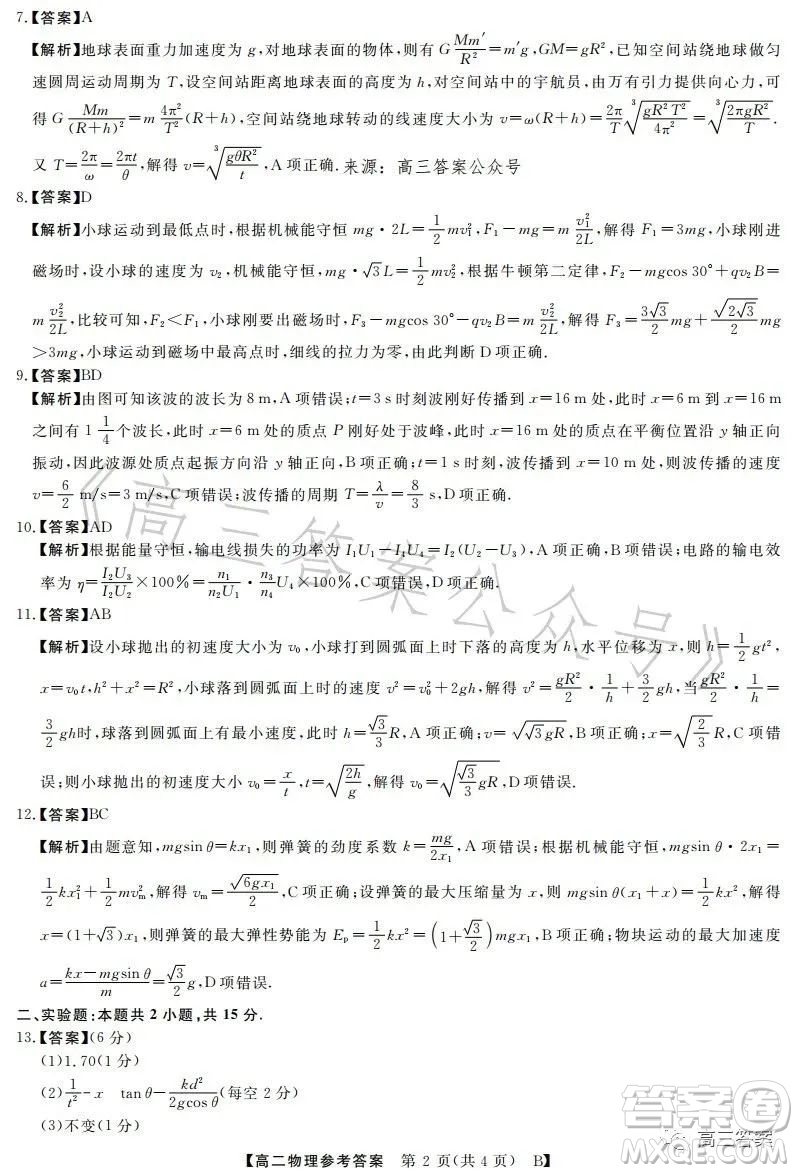 7.【答案】A
【解析】地球表面重力加速度为 g,对地球表面的物体,则有 G\frac{Mm'}{R^2}=m'g,GM=gR^2,已知空间站绕地球做匀
速圆周运动周期为 T,设空间站距离地球表面的高度为 h,对空间站中的宇航员,由万有引力提供向心力,可
得 G\frac{Mm}{(R+h)^2}=m\frac{4π^2}{T^2}(R+h),空间站绕地球转动的线速度大小为 v=ω(R+h)=\frac{2π}{T}\sqrt[3]{\frac{gR^2T^2}{4π^2}}=\sqrt[3]{\frac{2πgR^2}{T}}.
又 T=\frac{2π}{ω}=\frac{2πt}{θ},解得 v=\sqrt[3]{\frac{gθR^2}{t}},A 项正确. 来源：高三答案公众号
8.【答案】D
【解析】小球运动到最低点时,根据机械能守恒 mg·2L=\frac{1}{2}mv_1^2,F_1-mg=m\frac{v_1^2}{2L},解得 F_1=3mg,小球刚进
磁场时,设小球的速度为 v_2,机械能守恒,mg·\sqrt{3}L=\frac{1}{2}mv_2^2,根据牛顿第二定律,F_2-mgcos 30°+qv_2B=
m\frac{v_2^2}{2L},比较可知,F_2<F_1,小球刚要出磁场时,F_3-mgcos 30°-qv_2B=m\frac{v_2^2}{2L},解得 F_3=\frac{3\sqrt{3}}{2}mg+\frac{\sqrt{2\sqrt{3}}}{2}mg
>3mg,小球运动到磁场中最高点时,细线的拉力为零,由此判断 D 项正确.
9.【答案】BD
【解析】由图可知该波的波长为 8 m,A 项错误;t=3 s 时刻波刚好传播到 x=16 m 处,此时 x=6 m 到 x=16 m
之间有 1\frac{1}{4}个波长,此时 x=6 m 处的质点 P 刚好处于波峰,此时 x=16 m 处的质点在平衡位置沿 y 轴正向
振动,因此波源处质点起振方向沿 y 轴正向,B 项正确;t=1 s 时刻,波传播到 x=10 m 处,则波传播的速度
v=\frac{6}{2} m/s=3 m/s,C 项错误;波传播的周期 T=\frac{λ}{v}=\frac{8}{3} s,D 项正确.
10.【答案】AD
【解析】根据能量守恒,输电线损失的功率为 I_1U_1-I_4U_4=I_2(U_2-U_3),A 项正确,B 项错误;电路的输电效
率为 η=\frac{I_2U_3}{I_2U_2}×100%=\frac{n_1}{n_2U_1}·\frac{n_3}{n_4}U_4×100%,C 项错误,D 项正确.
11.【答案】AB
【解析】设小球抛出的初速度大小为 v_0,小球打到圆弧面上时下落的高度为 h,水平位移为 x,则 h=\frac{1}{2}gt^2,
x=v_0t,h^2+x^2=R^2,小球落到圆弧面上时的速度 v^2=v_0^2+2gh,解得 v^2=\frac{gR^2}{2}·\frac{1}{h}+\frac{3}{2}gh,当\frac{gR^2}{2}·\frac{1}{h}=
\frac{3}{2}gh时,球落到圆弧面上有最小速度,此时 h=\frac{\sqrt{3}}{3}R,A 项正确;v=\sqrt{\sqrt{3}gR},B 项正确;x=\sqrt{\frac{2}{3}}R,C 项错
误;则小球抛出的初速度大小 v_0=\frac{x}{t},t=\sqrt{\frac{2h}{g}},解得 v_0=\sqrt{\frac{\sqrt{3}}{3}gR},D 项错误.
12.【答案】BC
【解析】由题意知,mgsin θ=kx_1,则弹簧的劲度系数 k=\frac{mg}{2x_1},A 项错误;根据机械能守恒,mgsin θ·2x_1=
\frac{1}{2}kx_1^2+\frac{1}{2}mv_m^2,解得 v_m=\frac{\sqrt{6gx_1}}{2},C 项正确;设弹簧的最大压缩量为 x,则 mgsin θ(x_1+x)=\frac{1}{2}kx^2,解得
x=(1+\sqrt{3})x_1,则弹簧的最大弹性势能为 E_p=\frac{1}{2}kx^2=(1+\frac{\sqrt{3}}{2})mgx_1,B 项正确;物块运动的最大加速度
a=\frac{kx-mgsin θ}{m}=\frac{\sqrt{3}}{2}g,D 项错误.
二、实验题:本题共 2 小题,共 15 分.
13.【答案】(6 分)
(1)1.70(1 分)
(2)\frac{1}{t^2}-x tan θ-\frac{kd^2}{2gcos θ}(每空 2 分)
(3)不变(1 分)
【高二物理参考答案 第 2 页(共 4 页) B】
《高三答案公众号》
答案卷
高三答案